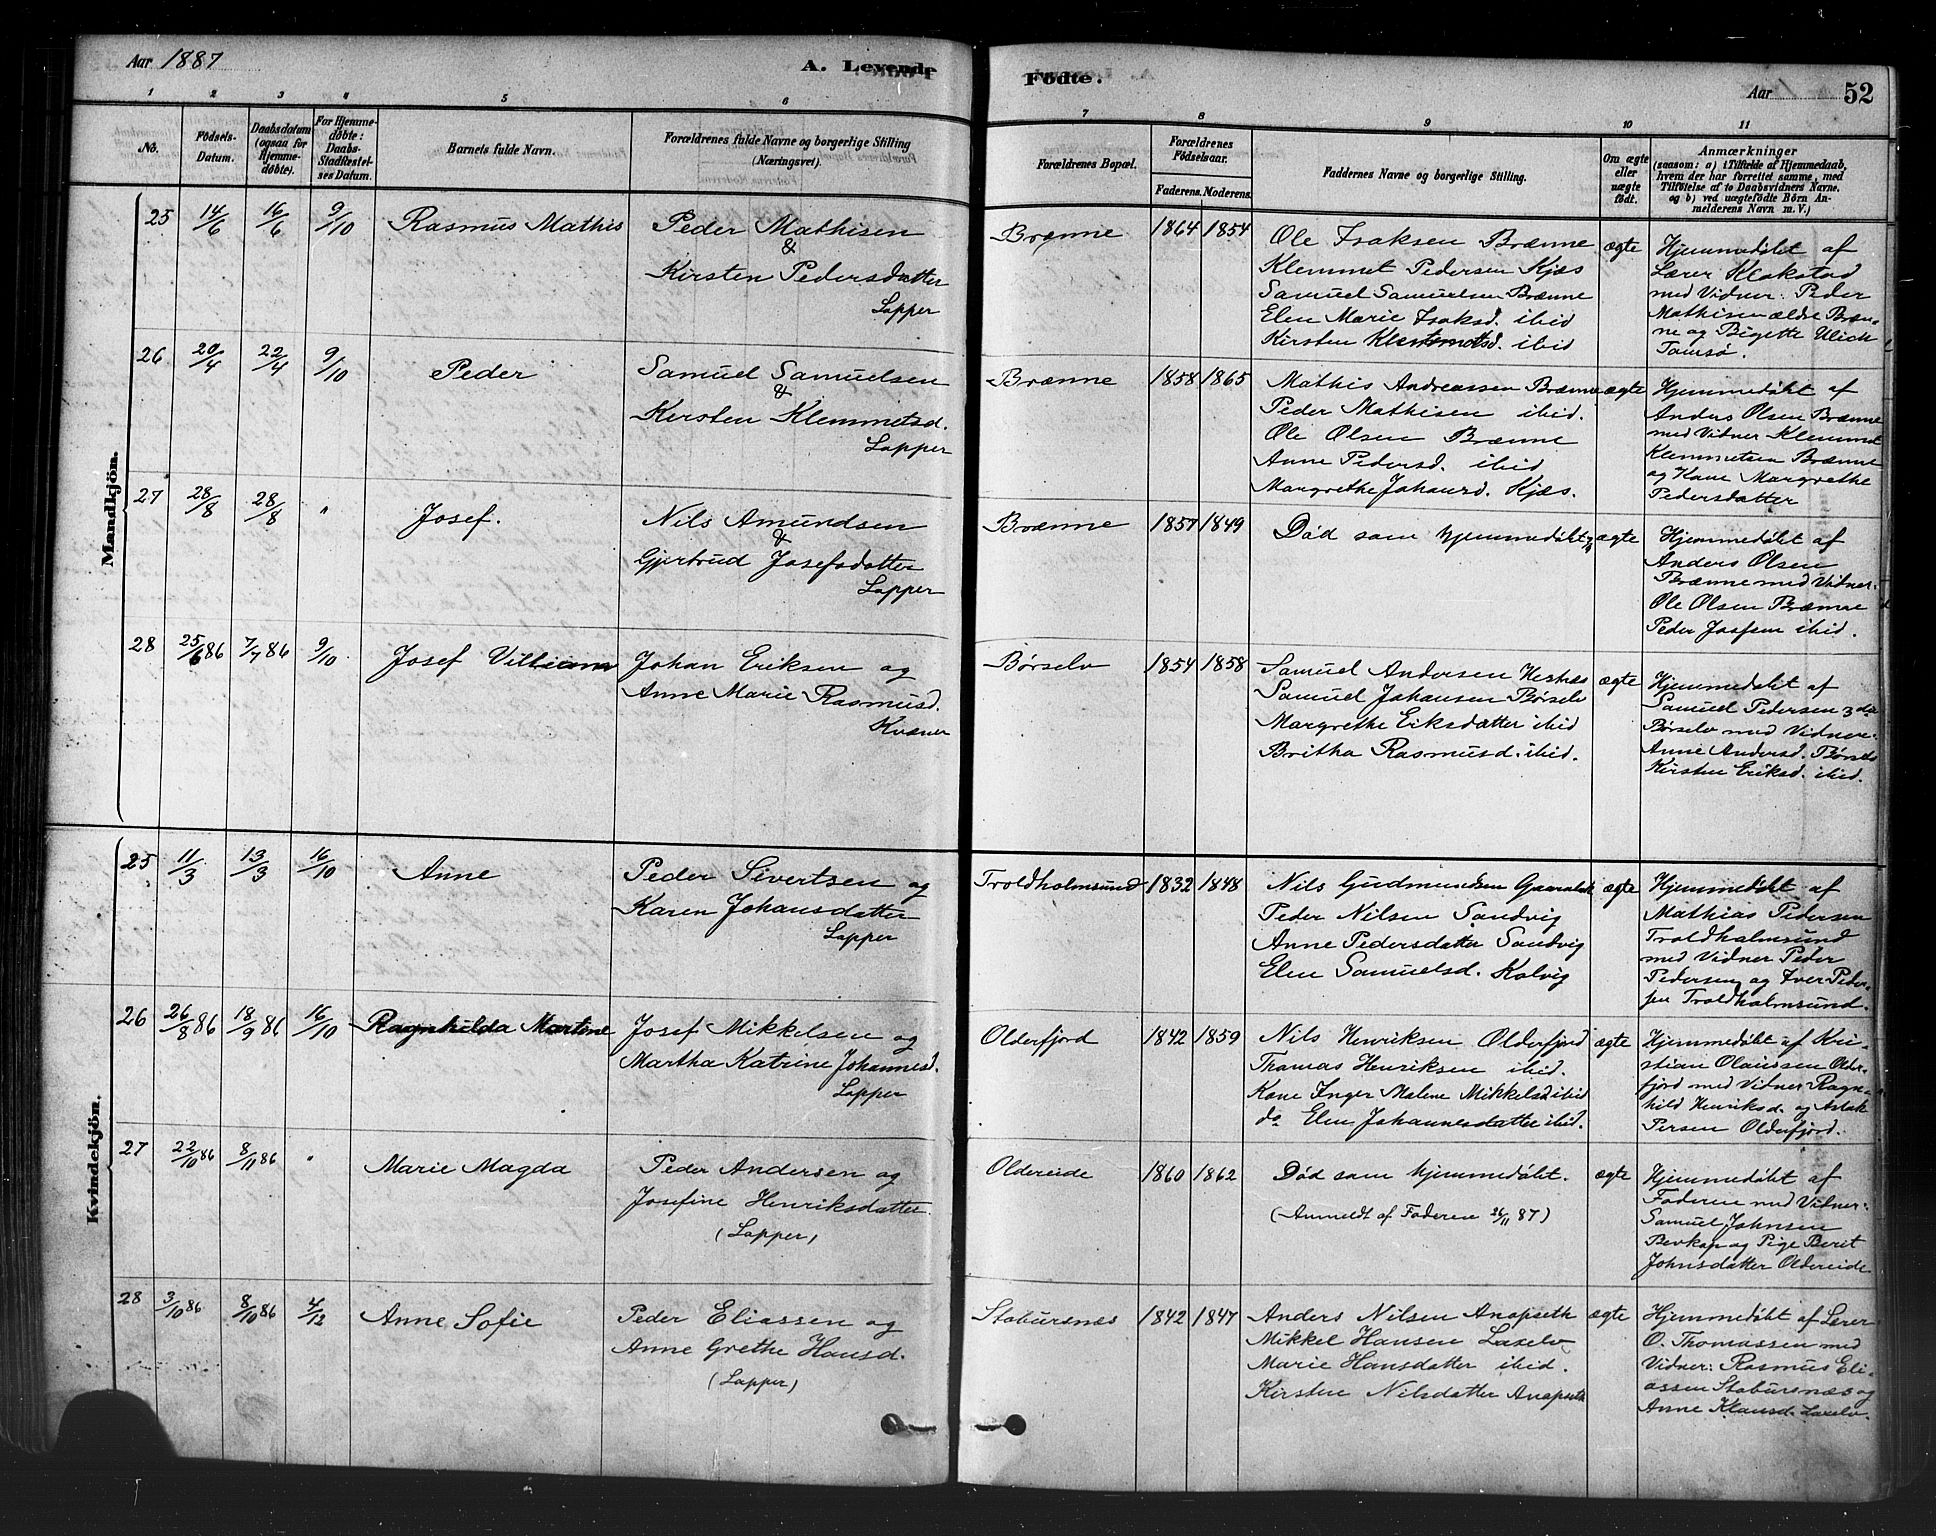 Aar 1887
A. Levende
Fødte.
Aar
52
1 2 3 4 5 6 7 8 9 10 11
No.
Fødsels-
Datum.
Daabsdatum
(ogsaa for
Hjemme-
døbte).
For Hjemme-
døbte:
Daabs-
Stadfæstel-
ses Datum.
Barnets fulde Navn.
Forældrenes fulde Navne og borgerlige Stilling
(Næringsvei).
Forældrenes Bopæl.
Forældrenes
Fødselsaar.
Faderens. Moderens.
Faddernes Navne og borgerlige Stilling.
Om ægte
eller
uægte
født.
Anmærkninger
(saasom: a) i Tilfælde af Hjemmedaab,
hvem der har forrettet samme, med
Tilføielse af to Daabsvidners Navne,
og b) ved uægtefødte Børn An-
melderens Navn m. V.)
Mandkjön.
25 14/6 16/6 9/10 Rasmus Mathis
Peder Mathisen
&
Kirsten Pedersdatter
Lapper
Brænne 1864 1854
Ole Isaksen Brænne
Klemmet Pedersen Kjæs
Samuel Samuelsen Brænne
Elen Marie Isaksd. ibid
Kirsten Klemmetsd. ibid
ægte
Hjemmedøbt af
Lærer Klokstad
med Vidner: Peder
Mathisen ældre Bræn-
ne og Birgette Ulich
Tamsø.
26 20/4 22/4 9/10 Peder
Samuel Samuelsen
&
Kirsten Klemmetsd.
Lapper
Brænne 1858 1865
Mathis Andreassen Brænne
Peder Mathisen ibid.
Ole Olsen Brænne
Anne Pedersd. ibid
Margrethe Johansd. Kjæs.
ægte
Hjemmedøbt af
Anders Olsen Brænne
med Vidner Klemmet
Klemmetsen Brænne
og Kane Margrethe
Pedersdatter
27 28/8 28/8 " Josef.
Nils Amundsen
&
Gjertrud Josefsdatter
Lapper
Brænne 1857 1849
Død som hjemmedøbt
ægte
Hjemmedøbt af
Anders Olsen
Brænne med Vidner:
Ole Olsen Brænne
Peder Josefsen ibid.
28 25/6 86 7/7 86 9/10 Josef Villiam
Johan Eriksen og
Anne Marie Rasmusd.
Kvæner
Børselv 1854 1858
Samuel Andersen Hestnæs
Samuel Johansen Børselv
Margrethe Eriksdatter ibid
Britha Rasmusd. ibid.
ægte
Hjemmedøbt af
Samuel Pedersen 3die
Børselv med Vidnere
Anne Andersd. Børselv
Kirsten Eriksd. ibid.
Kvindekjön.
25 11/3 13/3 16/10 Anne
Peder Sivertsen og
Karen Johansdatter
Lapper
Troldholmsund 1832 1848
Nils Gudmundsen
Peder Nilsen Sandvig
Anne Pedersdatter Sandvig
Elen Samuelsd. Kolvig
ægte
Hjemmedøbt af
Mathias Pedersen
Troldholmsund
med Vidner Peder
Pedersen og Iver Peder-
sen Troldholmsund.
26 26/8 86 18/9 86 16/10 Ragnhilda Martine
Josef Mikkelsen og
Martha Katrine Johannesd.
Lapper
Olderfjord 1842 1859
Nils Henriksen Olderfjord
Thomas Henriksen ibid.
Kone Inger Malene Mikkelsd ibid
do Elen Johannesdatter ibid.
ægte
Hjemmedøbt af Kri-
stian Olaussen Older-
fjord med Vidner Ragn-
hild Henriksd. og Aslak
Persen Olderfjord.
27 22/10 86 8/11 86 " Marie Magda
Peder Andersen og
Josefine Henriksdatter.
(Lapper)
Oldereide 1860 1862
Død som hjemmedøbt.
(Anmeldt af Faderen 26/11 87)
ægte
Hjemmedøbt af
Faderen med Vidner:
Samuel Johnsen
Bevkop og Pige Berit
Johnsdatter Oldereide
28 3/10 86 8/10 86 4/12 Anne Sofie
Peder Eliassen og
Anne Grethe Hansd.
(Lapper)
Stabursnæs 1842 1847
Anders Nilsen Anapseth
Mikkel Hansen Laxelv
Marie Hansdatter ibid.
Kirsten Nilsdatter Anapseth
ægte
Hjemmedøbt af Lærer
O. Thomassen med
Vidner: Rasmus Eli-
assen Stabursnæs og
Anne Klausd. Laxelv.